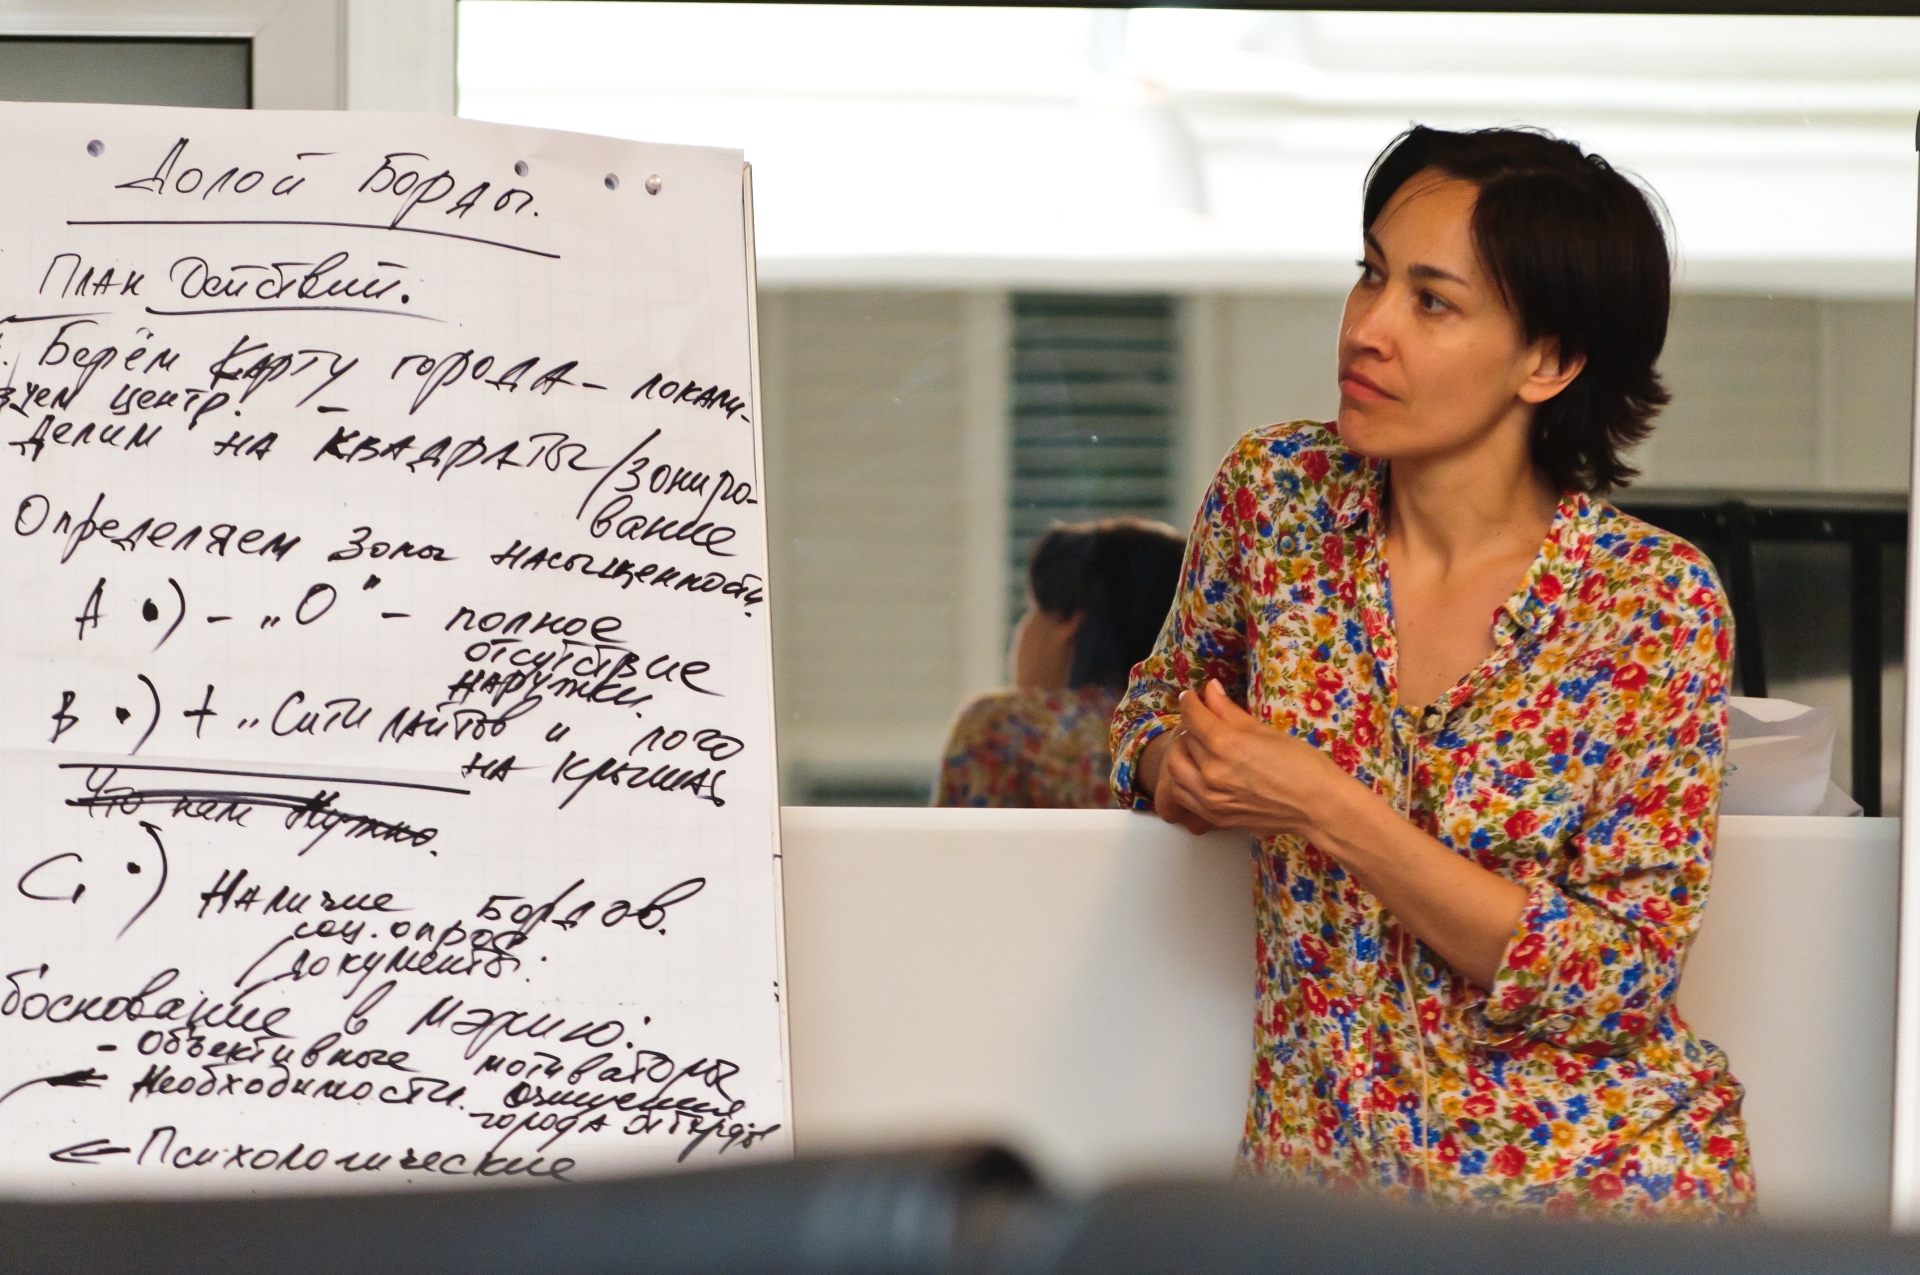 Долой Борды.
План Действий.
Берём Карту города – локали-
зуем центр. –
Делим на квадраты / зониро-
вание
Определяем Зоны насыщенности.
А •) – „О" – полное
отсутствие
наружки.
В •) + „Сити лайтов и лого
на крышах
Что нам Нужно.
С, •)
Наличие бордов.
соц. опрос
документы.
боснование в Мэрию:
- Объективные мотиваторы
Необходимости. Очищения
города от
Психологические